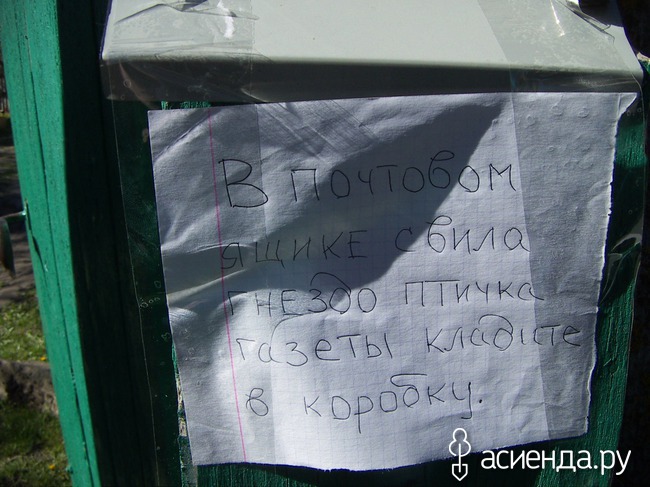 В почтовом
ящике свила
гнездо птичка
газеты кладите
в коробку.
асиенда.ру